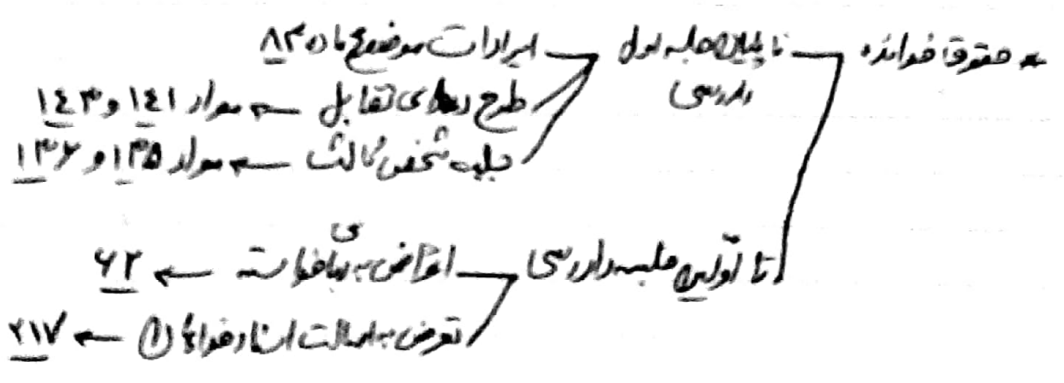 * حقوق خوانده
تا پایان جلسه اول دادرسی
ایرادات موضوع ماده ۸۴
طرح دعوای تقابل ← مواد ۱۴۱ و ۱۴۳
جلب شخص ثالث ← مواد ۱۳۵ و ۱۳۶
تا اولین جلسه دادرسی
اعتراض به بهای خواسته ← ۶۲
تعرض به اصالت اسناد خواهان ← ۲۱۷